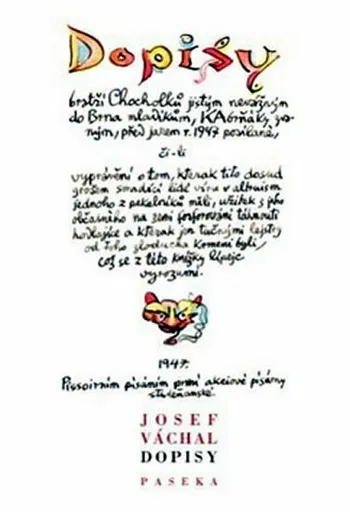 Dopisy
bratří Chocholků jistým nevážným
do Brna mladíkům, KAbrňáky zva-
ným, před jarem r. 1947 posílané,
či-li
vyprávění o tom, kterak tito dosud
grošem smradící lidé víru v altruism
jednoho z pekelníků měli, užitek z jeho
občasného na zemi fosforování táhnouti
a kterak jen tučnými lejstry
od toho Komení byli,
což se z této knížky lépeje
vyrozumí.
1947.
Pissoirním písáním první akciové písárny
studeňanské
JOSEF
VÁCHAL
DOPISY
PASEKA